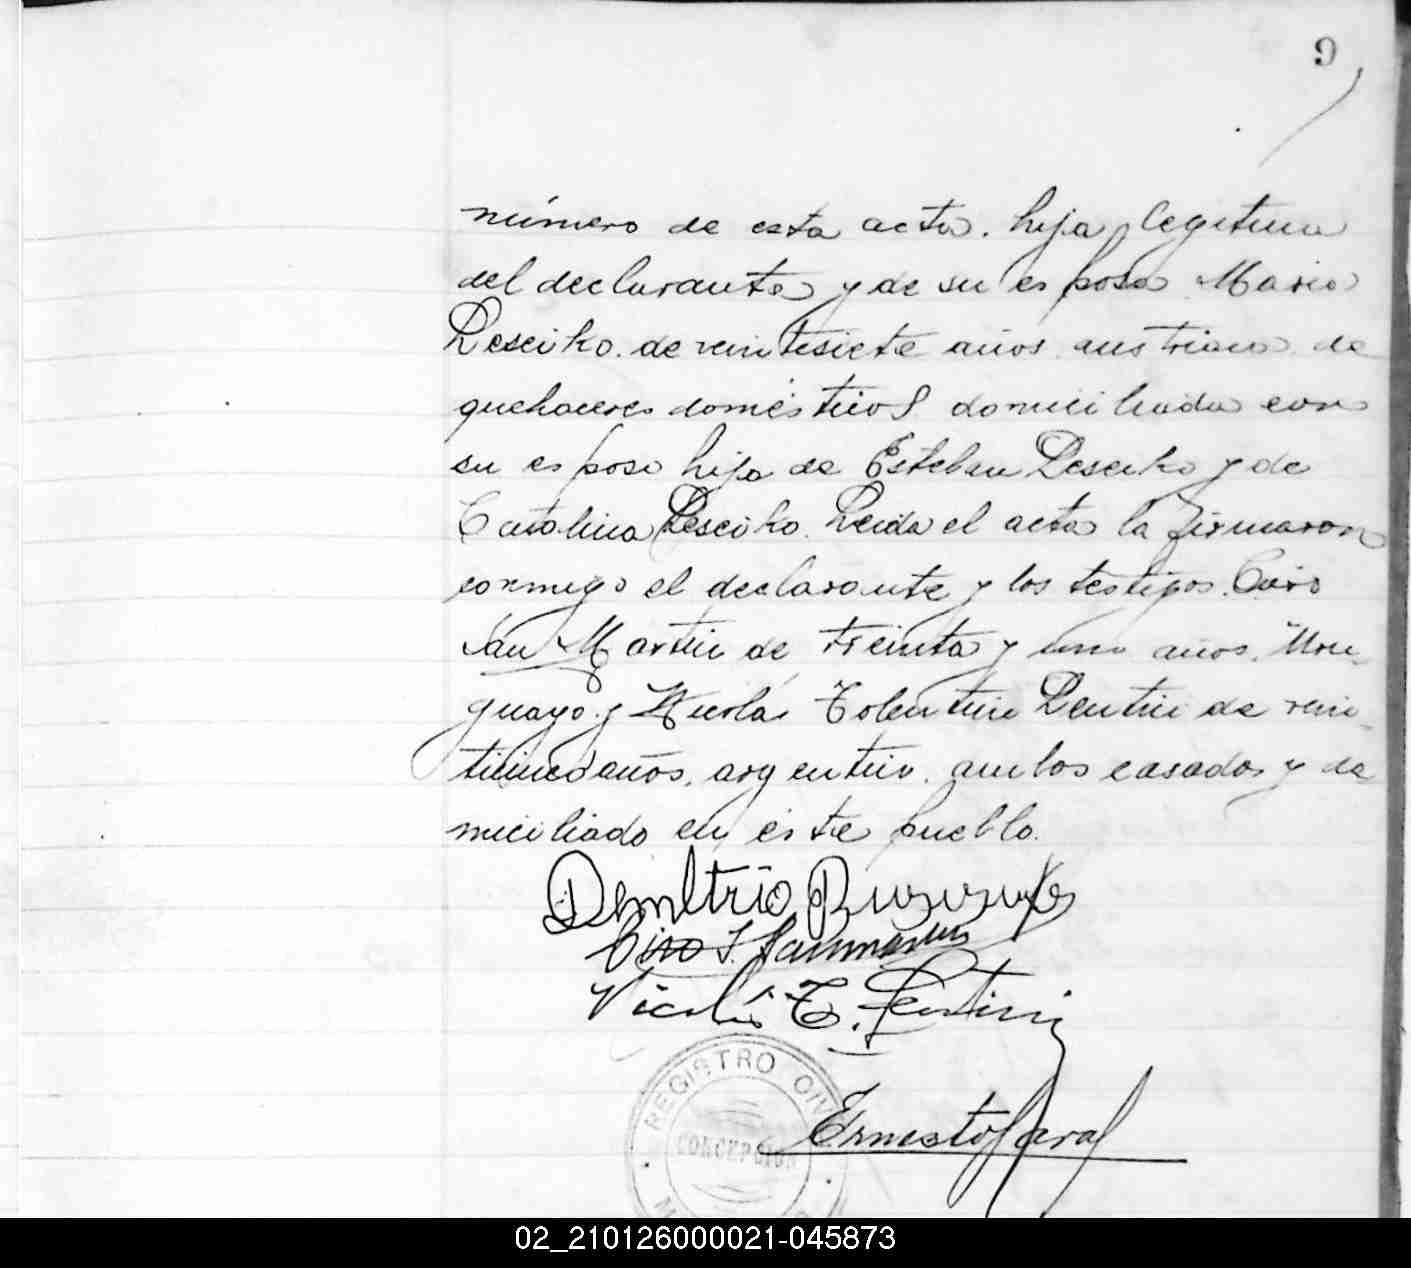 9
número de esta acta. hija legitima
del declarante y de su esposa Maria
Leseiko. de veintesiete años austriaca de
quehaceres doméstticos domiciliada con
su esposo hija de Esteban Leseiko y de
Catalina Leseiko. Leida el acta la firmaron
conmigo el declarante y los testigos. Ciro
San Martin de treinta y uno años. Uru-
guayo. y Nicolás Tolentin Lentin de vein-
ticinco años. argentino. ambos casados y do
miciliado en éste pueblo.
Demetrio
Ciro S. Sanmartin
Nicolás T. Lentini
REGISTRO CIVIL
CONCEPCION
Ernesto
02_210126000021-045873